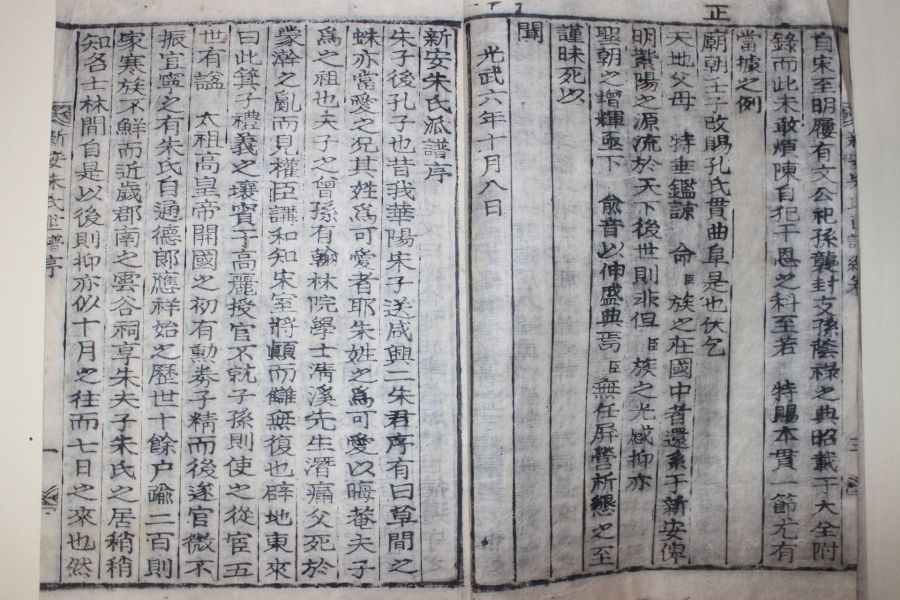 正
自宋至明屢有文公祀孫襲封支孫蔭祿之典昭載于大全附
錄而此未敢煩陳自犯干恩之科至若 特賜本貫一節尤有
當據之例
廟朝士子改賜孔氏貫曲阜是也伏乞
天地父母 特垂鑑諒 命臣族之在國中者還系于新安俾
明紫陽之源流於天下後世則非但臣族之光感抑亦
聖朝之增輝亟下 兪音以伸盛典焉臣無任屏營祈懇之至
謹昧死以
聞
光武六年十月八日
新安朱氏派譜序
朱子後孔子也昔我華陽宋子送咸興二朱君序有曰草間之
蛛亦當愛之况其姓爲可愛者耶朱姓之爲可愛以晦菴夫子
爲之祖也夫子之曾孫有翰林院學士淸溪先生潛痛父死於
蒙瀚之亂而見權臣講和知宋室將顚而讎無復也辟地東來
曰此箕子禮義之壤賓于高麗授官不就子孫則使之從宦五
世有諡 太祖高皇帝開國之初有勳券子精而後遂官微不
振宜寧之有朱氏自通德郞應祥始之歷世十餘户踰二百則
家寒族不鮮而近歲郡南之雲谷祠享朱夫子朱氏之居稍稍
知名士林間自是以後則抑亦似十月之往而七日之來也然
新安朱氏世譜序
一